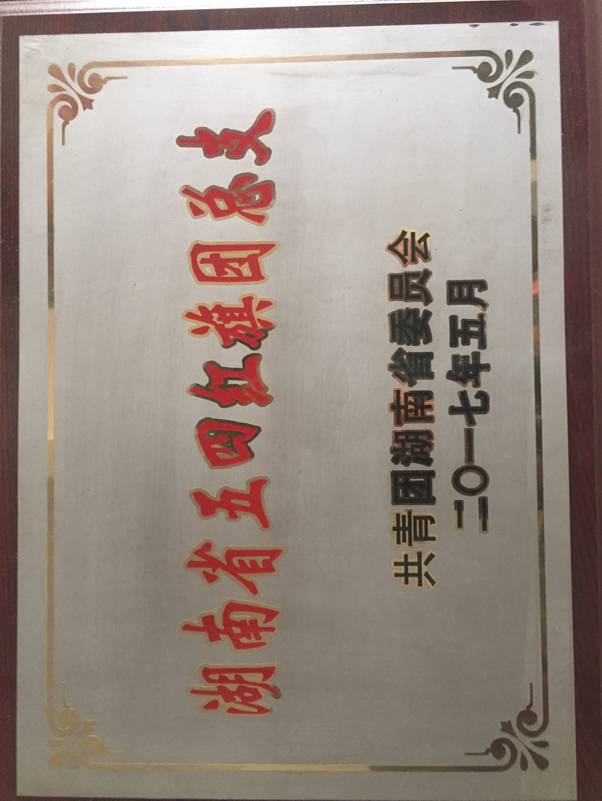 湖南省五四红旗团总支
共青团湖南省委员会
二〇一七年五月